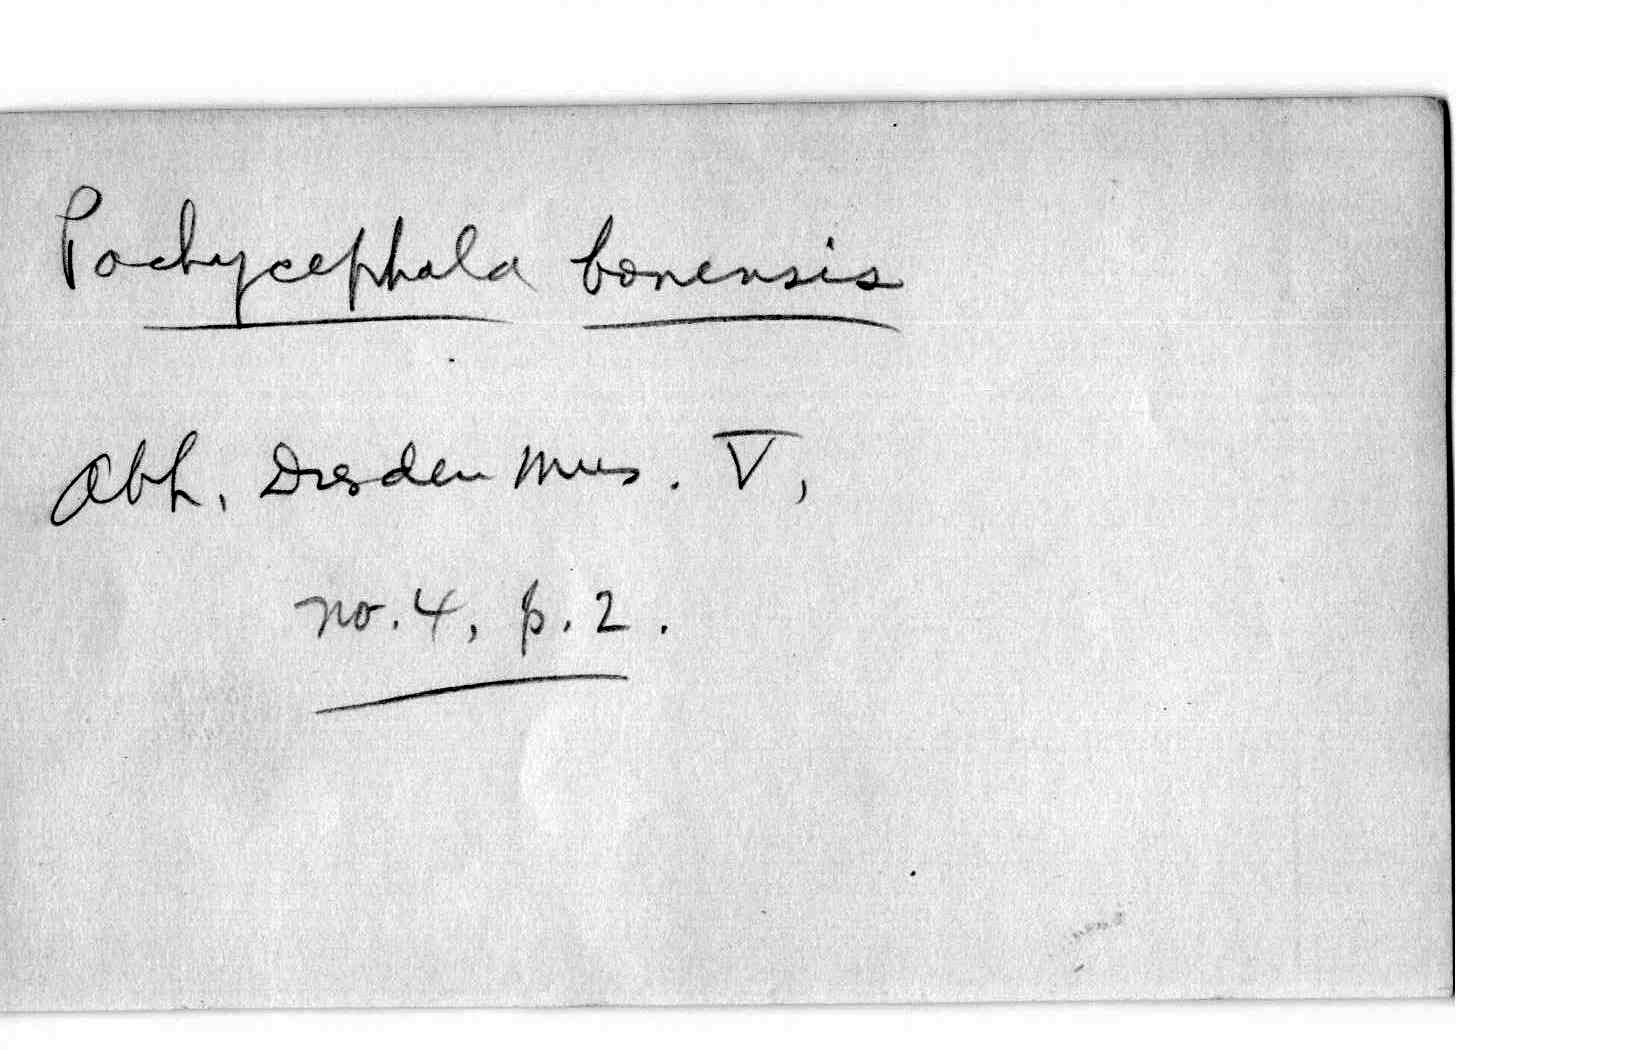 Pachycephala bonensis
Abh. Dresden Mus. V,
no. 4, p. 2.